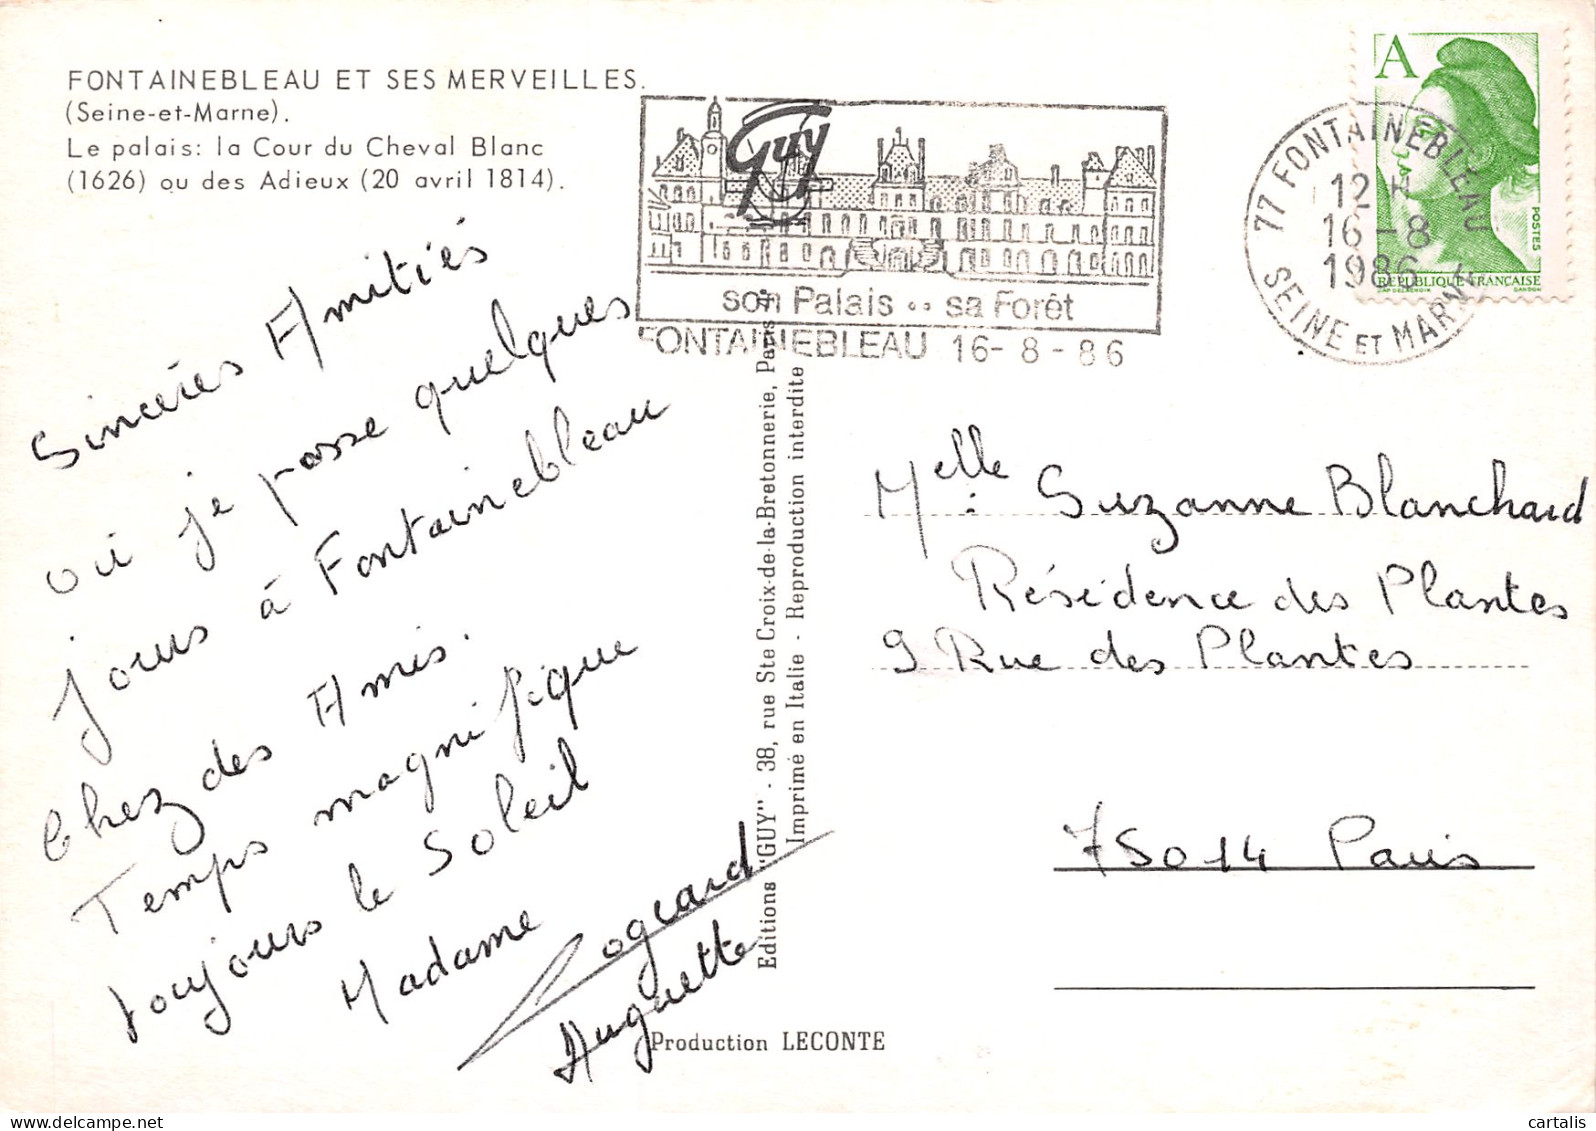 FONTAINEBLEAU ET SES MERVEILLES.
(Seine-et-Marne).
Le palais: la Cour du Cheval Blanc
(1626) ou des Adieux (20 avril 1814).
Guy
son Palais .. sa Forêt
FONTAINEBLEAU 16-8-86
77 FONTAINEBLEAU
12 H
16-8
1986
SEINE ET MARNE
A
POSTES
RÉPUBLIQUE FRANÇAISE
GANDON
Sincères Amitiés
où je passe quelques
jours à Fontainebleau
Chez des Amis.
Temps magnifique
toujours le Soleil
Madame
Huguette
Editions "GUY" - 38, rue Ste Croix-de-la-Bretonnerie, Paris
Imprimé en Italie - Reproduction interdite
Melle: Suzanne Blanchard
Résidence des Plantes
9 Rue des Plantes
75014 Paris
Production LECONTE
cartalis